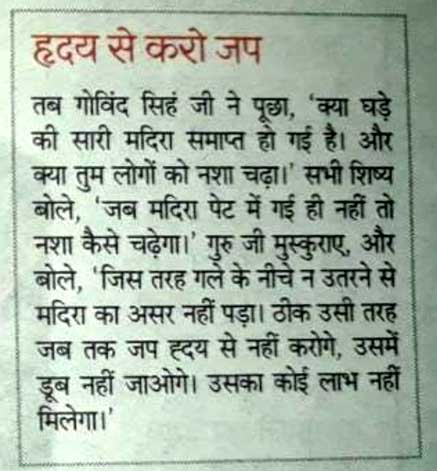 हृदय से करो जप
तब गोविंद सिहं जी ने पूछा, 'क्या घड़े
की सारी मदिरा समाप्त हो गई है। और
क्या तुम लोगों को नशा चढ़ा।' सभी शिष्य
बोले, 'जब मदिरा पेट में गई ही नहीं तो
नशा कैसे चढ़ेगा।' गुरु जी मुस्कुराए, और
बोले, 'जिस तरह गले के नीचे न उतरने से
मदिरा का असर नहीं पड़ा। ठीक उसी तरह
जब तक जप ह्दय से नहीं करोगे, उसमें
डूब नहीं जाओगे। उसका कोई लाभ नहीं
मिलेगा।'